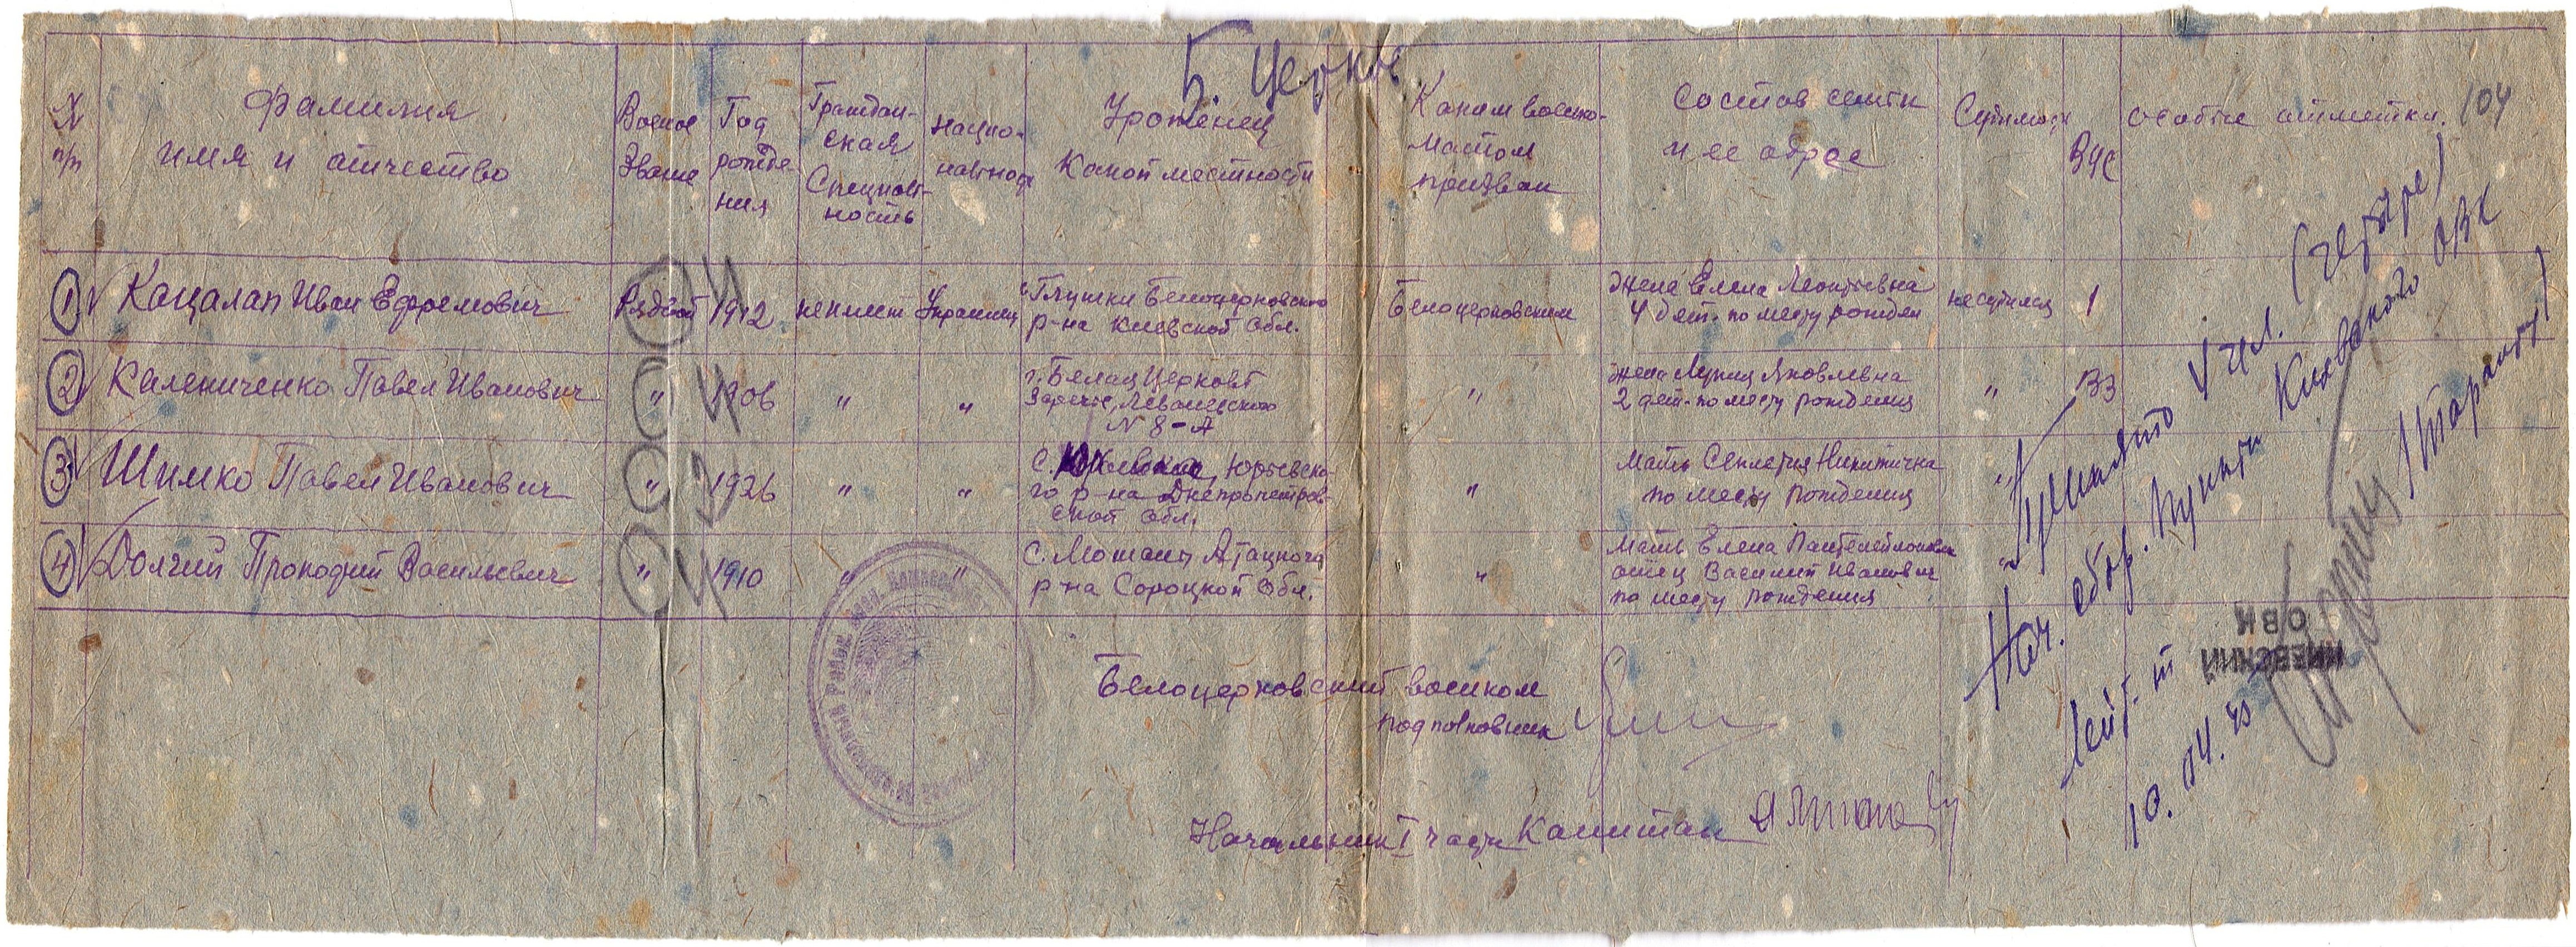 Б. Церков
104
N п/п
Фамилия имя и отчество
Военое Звание
Год рождения
Граждан-ская Специаль-ность
нацио-нальность
Уроженец Какой местности
Каким военко-матом призван
Состав семьи и ее адрес
Судимость
ВУС
особые отметки.
1 Кацалап Иван Ефремович Рядовой 1912 неимеет Украинец
с. Глушки Белоцерковского
р-на Киевской обл.
Белоцерковским
жена Елена Леонтьевна
4 дет. по месту рожден
несудился 1
2 Калениченко Павел Иванович " 1906 " "
г. Белая Церковь
Заречье, Леваневского
N 8-А
"
жена Лукия Яковлевна
2 дет. по месту рождения
" 133
3 Шимко Павел Иванович " 1926 " "
с. Юрьевско-
го р-на Днепропетров-
ской обл.
"
Мать Никитична
по месту рождения
"
4 Долгий Прокофий Васильевич " 1910 " "
с. Мошаны Атацкого
р-на Сорокской обл.
"
Мать Елена Пантелеймоновна
отец Василий Иванович
по месту рождения
"
Белоцерковский военком
подполковник
Начальник I части Капитан
Принято 4 чел. (четыре)
Нач. сбор. пункта Киевского ОВК
Лейт-т
10.04.45
КИЕВСКИЙ
ОВК